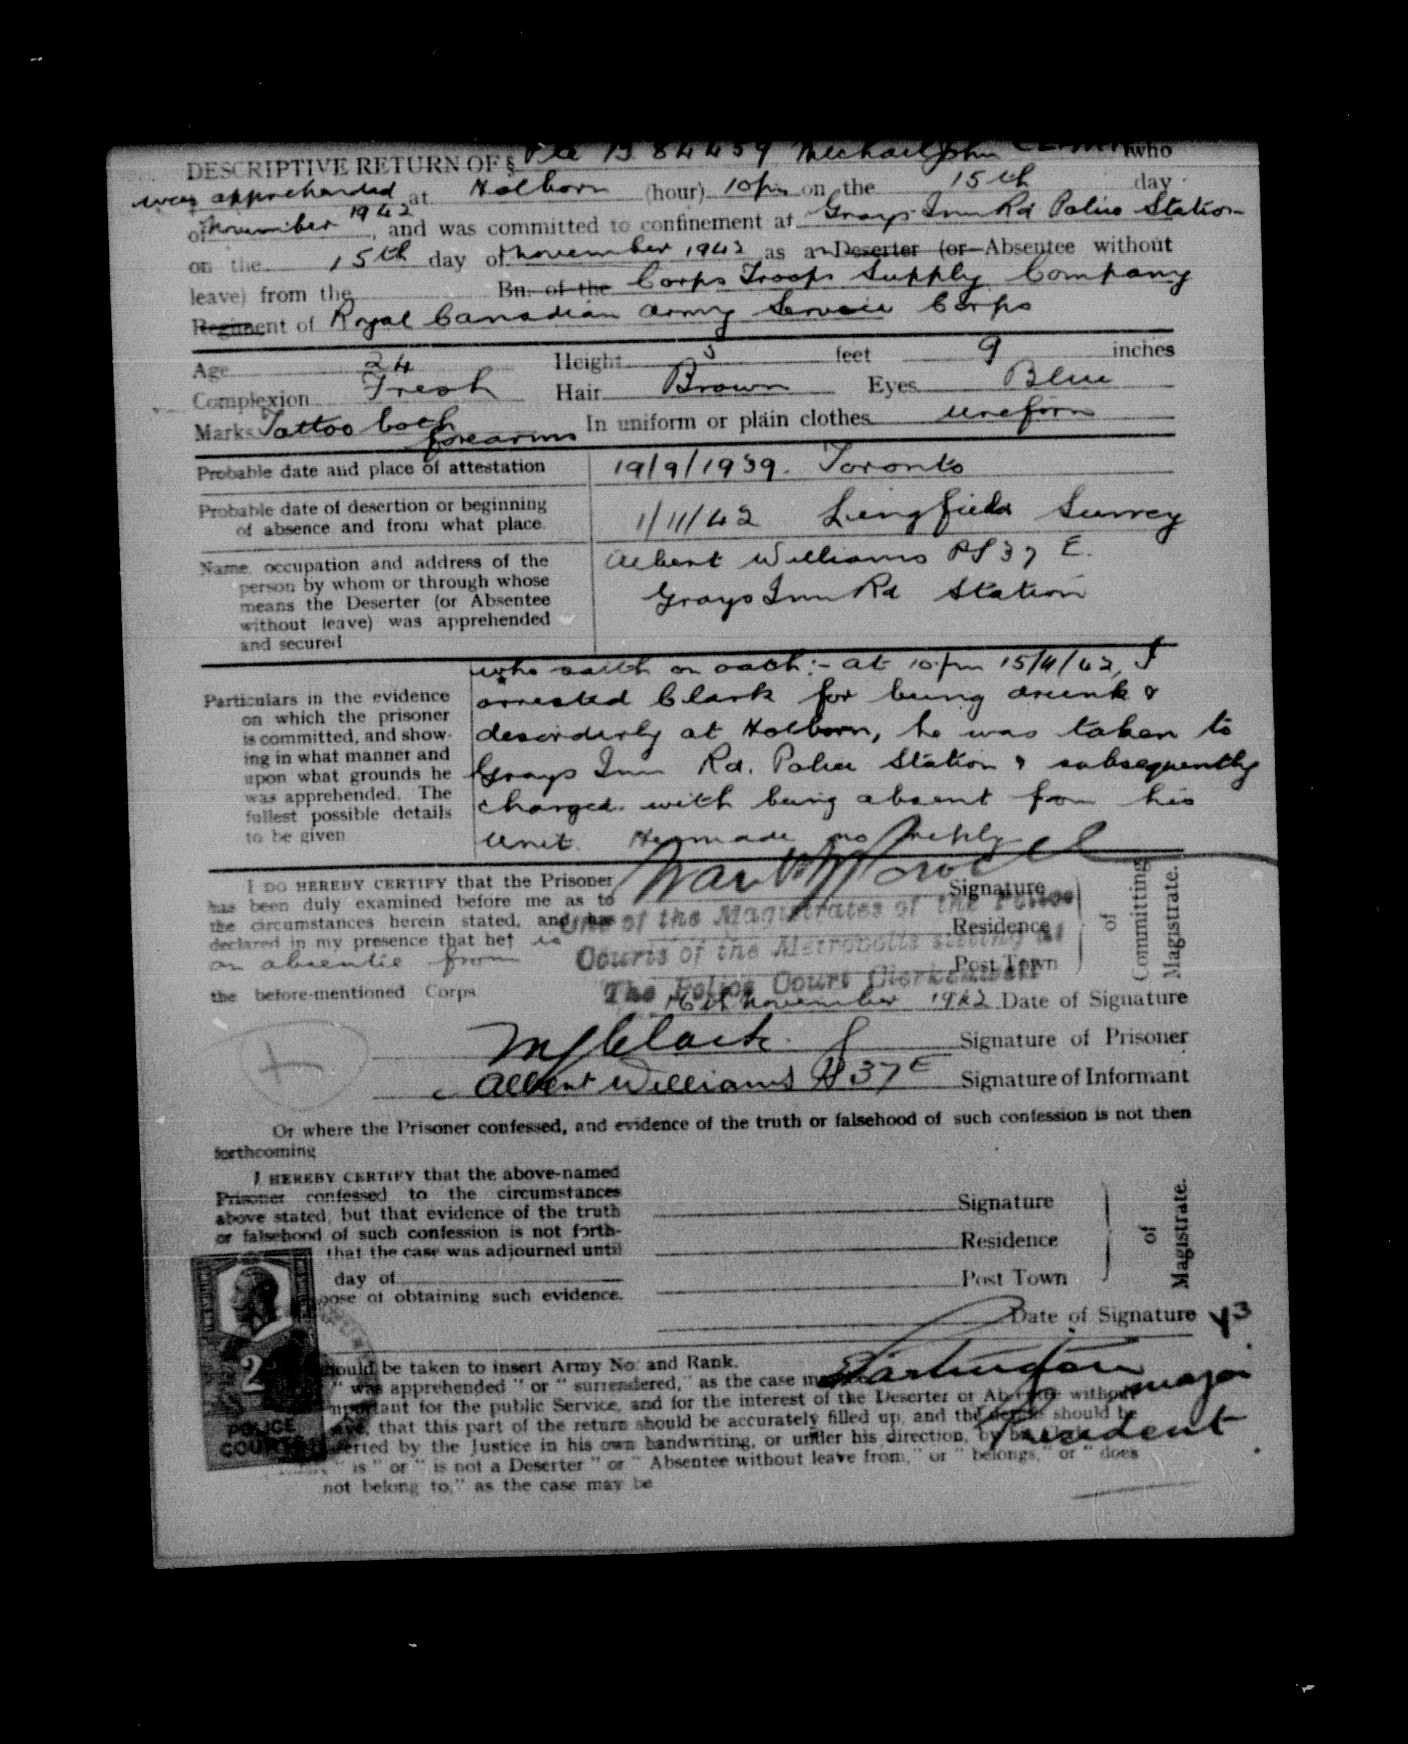 DESCRIPTIVE RETURN OF § Pte B 84459 Michael John who
was apprehended at Holborn (hour) 10 pm on the 15th day
of November 1942, and was committed to confinement at Grays Inn Rd Police Station
on the 15th day of November 1942 as a Deserter (or Absentee without
leave) from the Bn. of the Corps Troops Supply Company
Regiment of Royal Canadian Army Service Corps
Age 24 Height 5 feet 9 inches
Complexion Fresh Hair Brown Eyes Blue
Marks Tattoo both forearms In uniform or plain clothes uniform
Probable date and place of attestation 19/9/1939. Toronto
Probable date of desertion or beginning
of absence and from what place. 1/11/42 Lingfield Surrey
Name, occupation and address of the Albert Williams PS 37 E.
person by whom or through whose Grays Inn Rd Station
means the Deserter (or Absentee
without leave) was apprehended
and secured
who saith on oath:- at 10 pm 15/11/42, I
Particulars in the evidence arrested Clark for being drunk &
on which the prisoner
is committed, and show- disorderly at Holborn, he was taken to
ing in what manner and
upon what grounds he Grays Inn Rd. Police Station & subsequently
was apprehended. The
fullest possible details charged with being absent from his
to be given unit. He made no reply
I DO HEREBY CERTIFY that the Prisoner
has been duly examined before me as to Signature
the circumstances herein stated, and has Residence
declared in my presence that he† is Post Town
an absentee from
of Committing Magistrate.
One of the Magistrates of the Police
Courts of the Metropolis sitting at
The Police Court Clerkenwell
the before-mentioned Corps 16th November 1942 Date of Signature
M J Clark Signature of Prisoner
Albert Williams PS 37 E Signature of Informant
Or where the Prisoner confessed, and evidence of the truth or falsehood of such confession is not then
forthcoming
I HEREBY CERTIFY that the above-named
Prisoner confessed to the circumstances Signature
above stated, but that evidence of the truth
or falsehood of such confession is not forth- Residence
that the case was adjourned until
day of Post Town
pose of obtaining such evidence.
of Magistrate.
Date of Signature
hould be taken to insert Army No. and Rank.
" was apprehended " or " surrendered," as the case
mportant for the public Service, and for the interest of the Deserter or Absentee without
ave, that this part of the return should be accurately filled up, and the details should be
erted by the Justice in his own handwriting, or under his direction, by
" is " or " is not a Deserter " or " Absentee without leave from," or " belongs," or " does
not belong to," as the case may be
Major
President
2
POLICE
COURTS